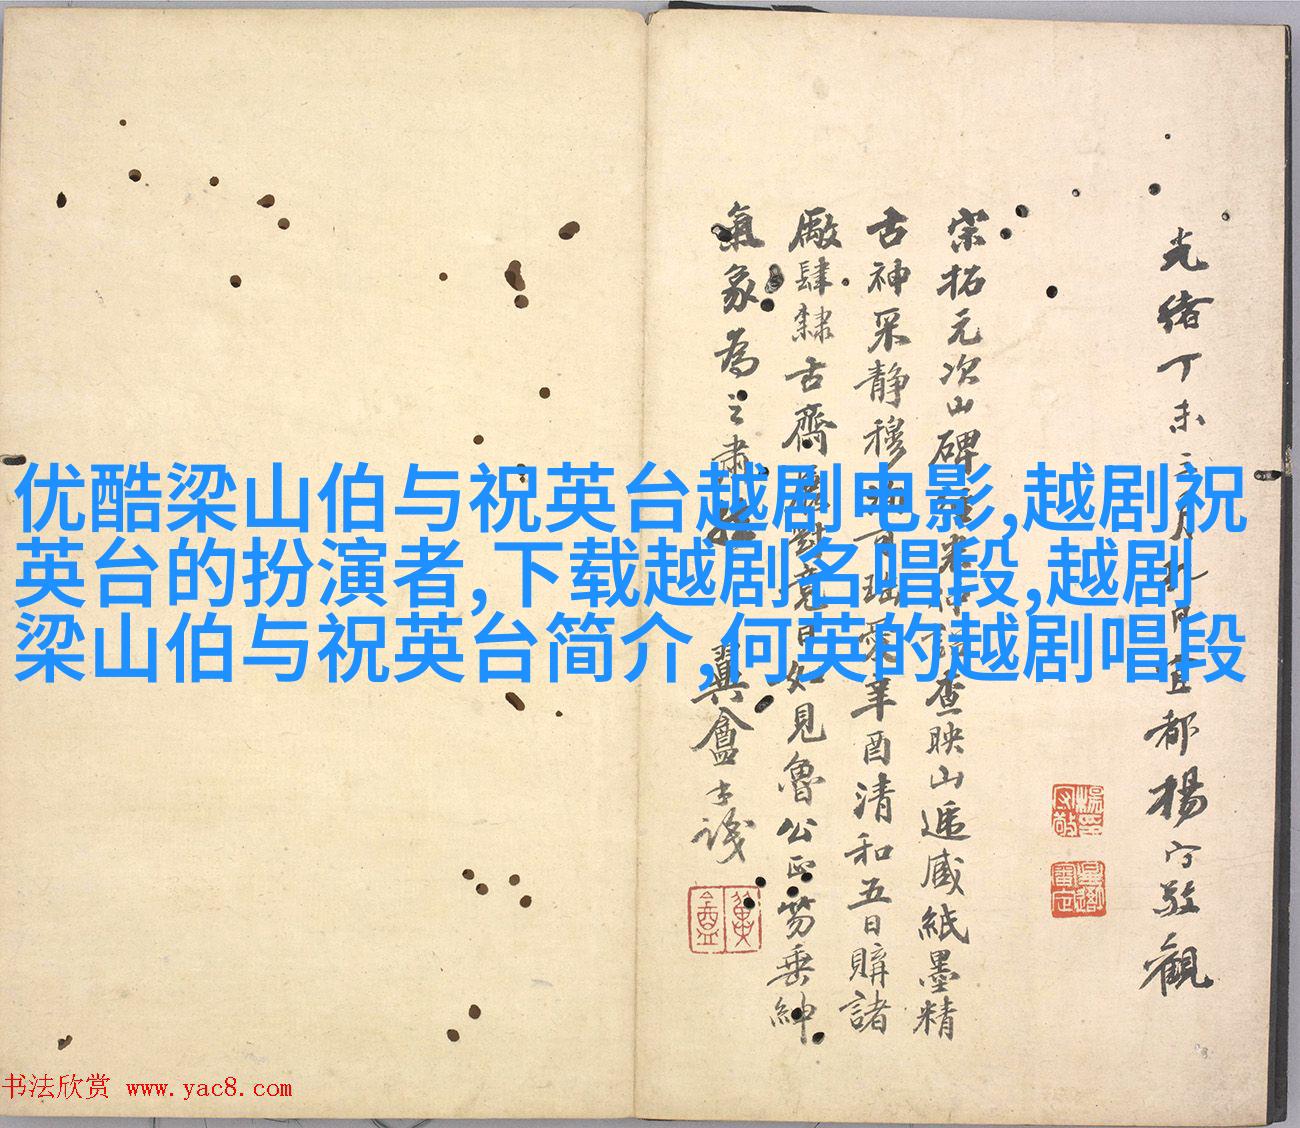 优酷梁山伯与祝英台越剧电影,越剧祝
英台的扮演者,下载越剧名唱段,越剧
梁山伯与祝英台简介,何英的越剧唱段
光绪丁未三月九日宜都楊守敬觀
宋拓元次山碑 查映山遞藏紙墨精
古神采静穆 可 愛辛酉清和五日購諸
廠肆隸古齋 對竟日如見魯公正笏垂紳
氣象為之肅 翼盦士 識
書法欣赏 www.yac8.com